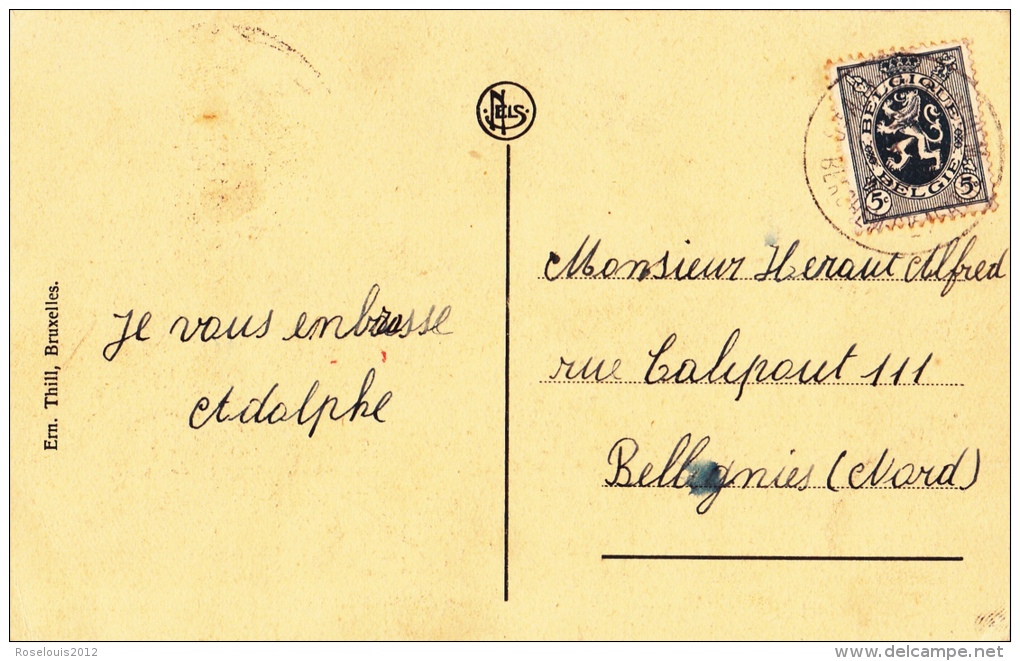 NELS
BELGIQUE
BELGIE
5c 5c
Monsieur Heraut Alfred
rue Calipont 111
Bellignies (Nord)
Je vous enbrasse
Adolphe
Ern. Thill, Bruxelles.
Roselouis2012
delcampe.net